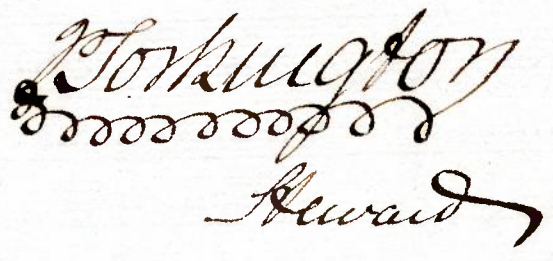 J Torkington
Steward